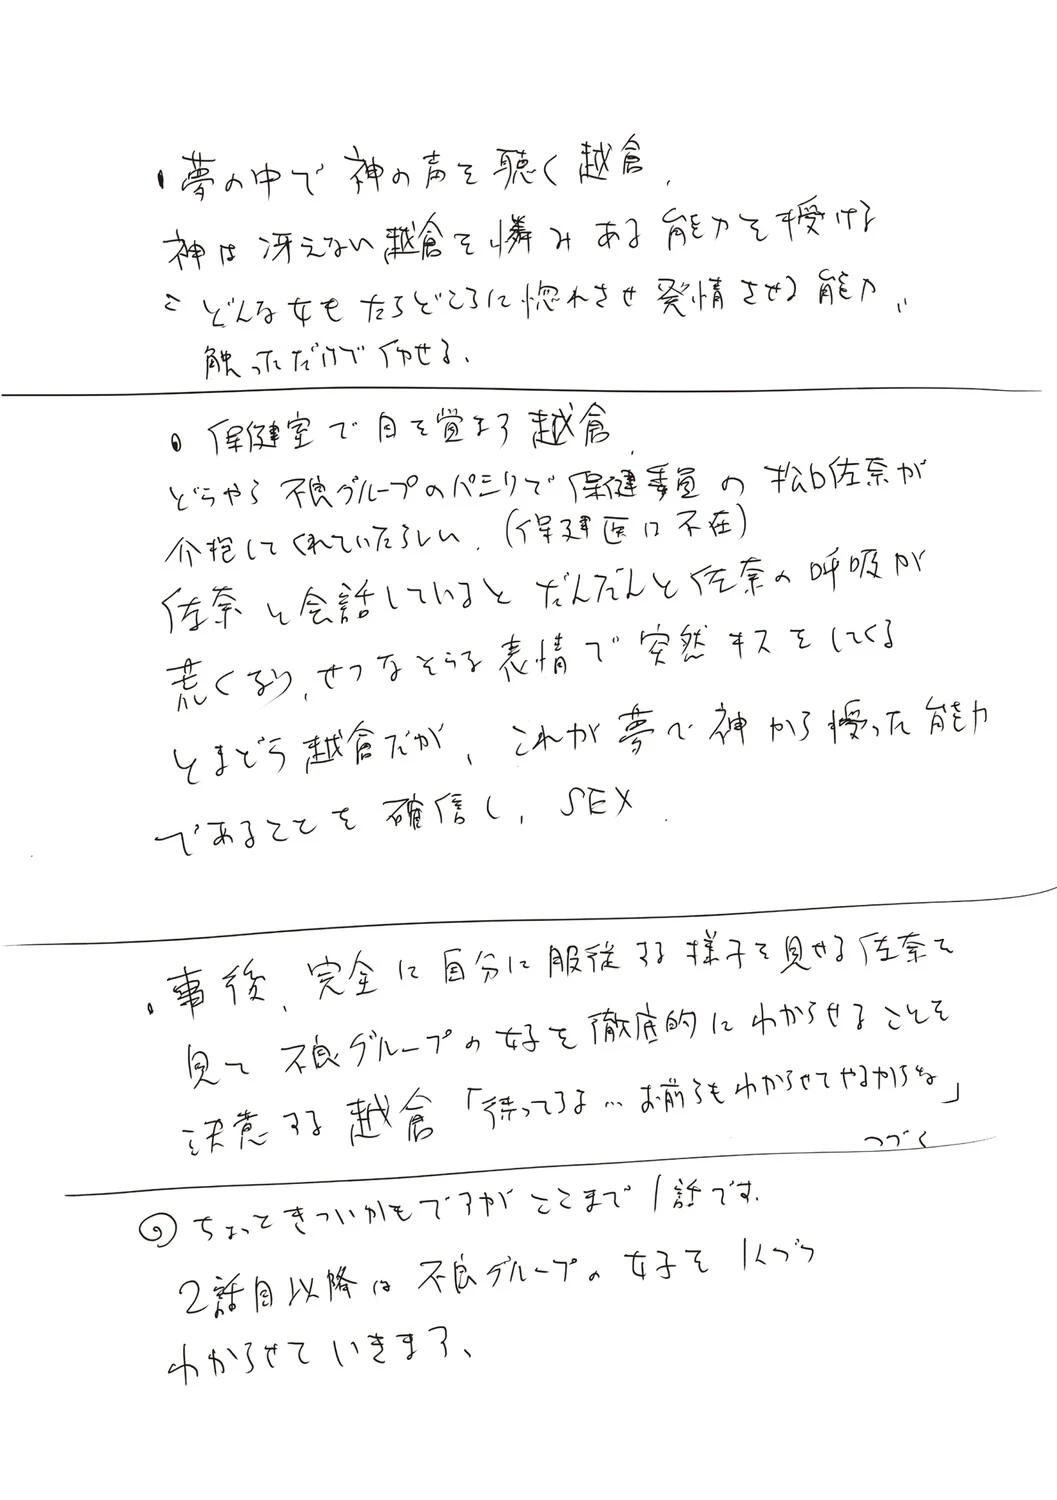 ・夢の中で神の声を聴く越倉.
神は冴えない越倉を憐みある能力を授ける
どんな女もたちどころに惚れさせ発情させる能力、
触っただけでイカせる.
・保健室で目を覚ます越倉.
どうやら不良グループのパシリで保健委員の松山佐奈が
介抱してくれていたらしい.(保健医は不在)
佐奈と会話しているとだんだんと佐奈の呼吸が
荒くなり、せつなそうな表情で突然キスをしてくる
とまどう越倉だが、これが夢で神から授った能力
であることを確信し、SEX.
・事後、完全に自分に服従する様子を見せる佐奈を
見て不良グループの女子を徹底的にわからせることを
決意する越倉「待ってろよ…お前らもわからせてやるからな」
つづく
◎ちょっときついかもですがここまで1話です.
2話目以降は不良グループの女子を1人づつ
わからせていきます、